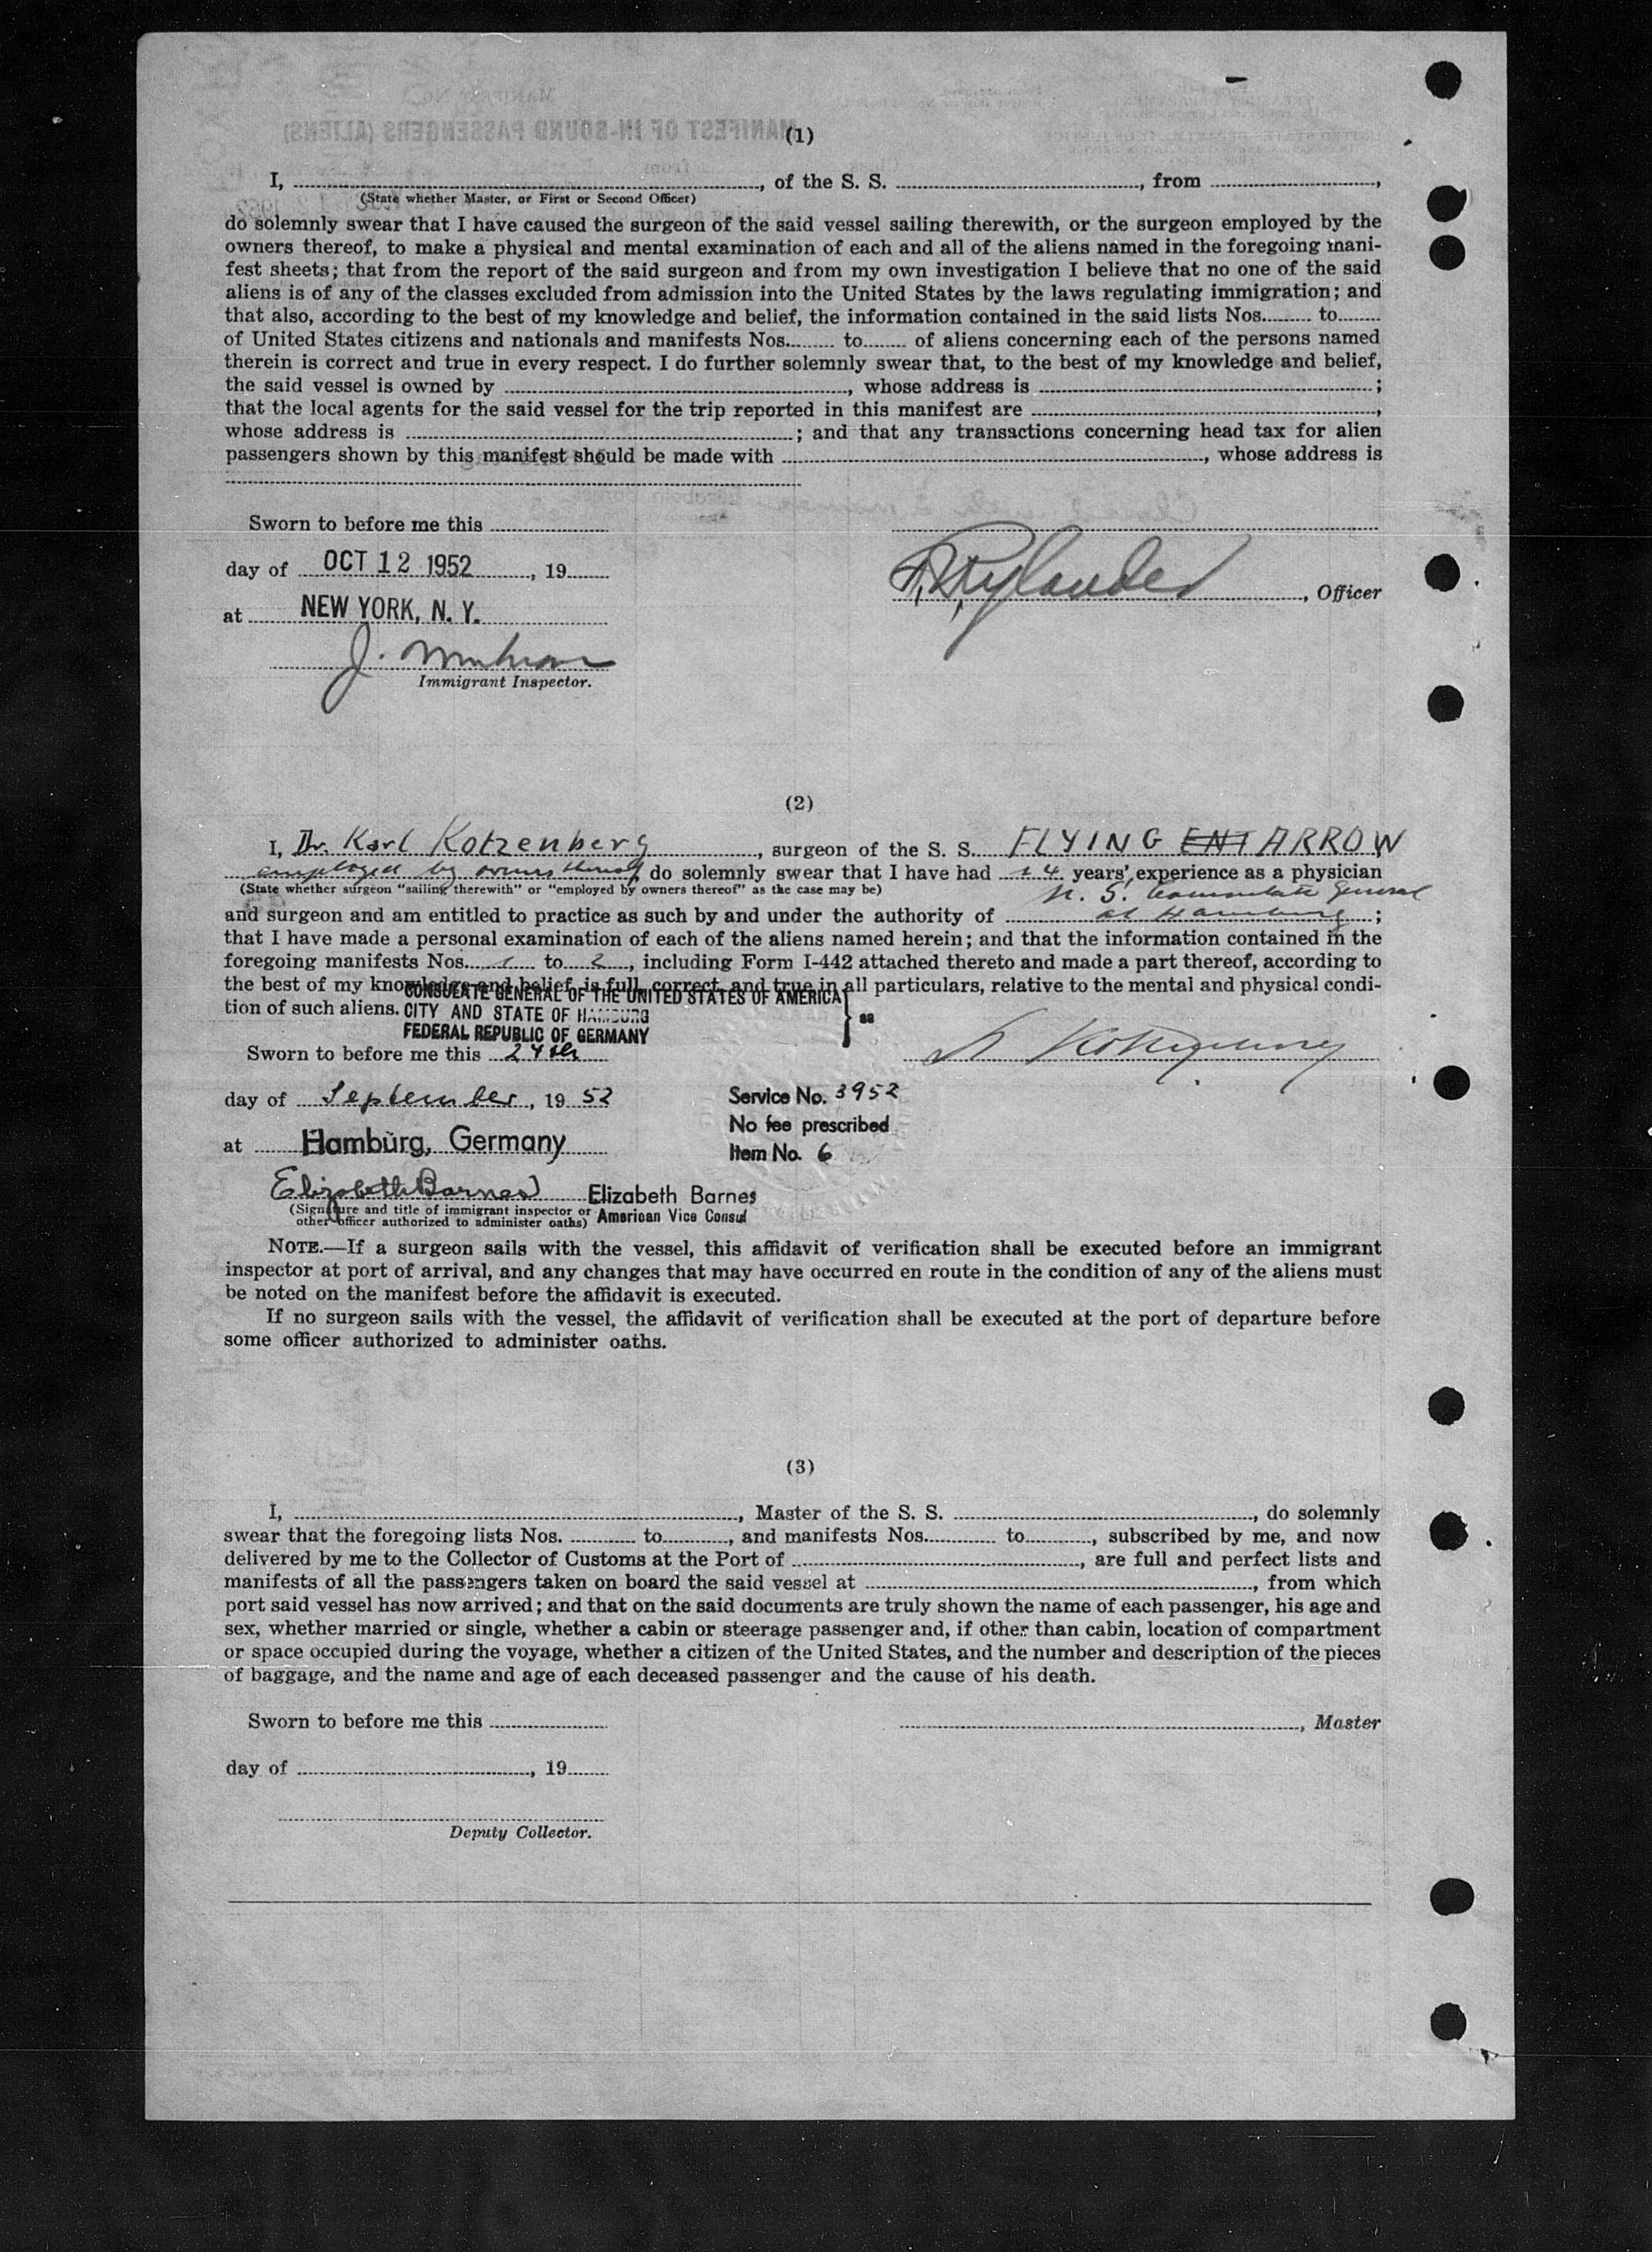 (1)
I, ........, of the S. S. ........, from ........,
(State whether Master, or First or Second Officer)
do solemnly swear that I have caused the surgeon of the said vessel sailing therewith, or the surgeon employed by the
owners thereof, to make a physical and mental examination of each and all of the aliens named in the foregoing mani-
fest sheets; that from the report of the said surgeon and from my own investigation I believe that no one of the said
aliens is of any of the classes excluded from admission into the United States by the laws regulating immigration; and
that also, according to the best of my knowledge and belief, the information contained in the said lists Nos........ to........
of United States citizens and nationals and manifests Nos........ to........ of aliens concerning each of the persons named
therein is correct and true in every respect. I do further solemnly swear that, to the best of my knowledge and belief,
the said vessel is owned by ........, whose address is ........;
that the local agents for the said vessel for the trip reported in this manifest are ........,
whose address is ........; and that any transactions concerning head tax for alien
passengers shown by this manifest should be made with ........, whose address is
Sworn to before me this ........
day of OCT 12 1952, 19........
Rylander, Officer
at NEW YORK, N. Y.
J.
Immigrant Inspector.
(2)
I, Dr. Karl Kotzenberg, surgeon of the S. S. FLYING ENT ARROW
employed by owners thereof, do solemnly swear that I have had 14 years' experience as a physician
(State whether surgeon "sailing therewith" or "employed by owners thereof" as the case may be)
U. S. Consulate General
and surgeon and am entitled to practice as such by and under the authority of at Hamburg;
that I have made a personal examination of each of the aliens named herein; and that the information contained in the
foregoing manifests Nos. 1 to 2, including Form I-442 attached thereto and made a part thereof, according to
the best of my knowledge and belief, is full, correct, and true in all particulars, relative to the mental and physical condi-
CONSULATE GENERAL OF THE UNITED STATES OF AMERICA
tion of such aliens. CITY AND STATE OF HAMBURG } ss
FEDERAL REPUBLIC OF GERMANY
Sworn to before me this 24th
K Kotzenberg
day of September, 19 52
Service No. 3952
No fee prescribed
at Hamburg, Germany
Item No. 6
Elizabeth Barnes Elizabeth Barnes
(Signature and title of immigrant inspector or
other officer authorized to administer oaths) American Vice Consul
NOTE.—If a surgeon sails with the vessel, this affidavit of verification shall be executed before an immigrant
inspector at port of arrival, and any changes that may have occurred en route in the condition of any of the aliens must
be noted on the manifest before the affidavit is executed.
If no surgeon sails with the vessel, the affidavit of verification shall be executed at the port of departure before
some officer authorized to administer oaths.
(3)
I, ........, Master of the S. S. ........, do solemnly
swear that the foregoing lists Nos. ........ to........, and manifests Nos........ to........, subscribed by me, and now
delivered by me to the Collector of Customs at the Port of ........, are full and perfect lists and
manifests of all the passengers taken on board the said vessel at ........, from which
port said vessel has now arrived; and that on the said documents are truly shown the name of each passenger, his age and
sex, whether married or single, whether a cabin or steerage passenger and, if other than cabin, location of compartment
or space occupied during the voyage, whether a citizen of the United States, and the number and description of the pieces
of baggage, and the name and age of each deceased passenger and the cause of his death.
Sworn to before me this ........
........, Master
day of ........, 19........
Deputy Collector.